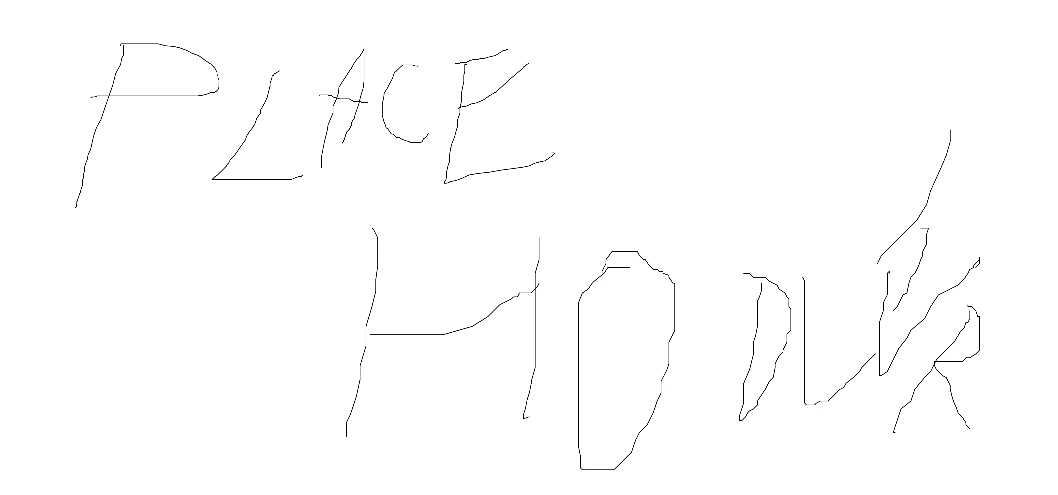 PLACE
HODLER